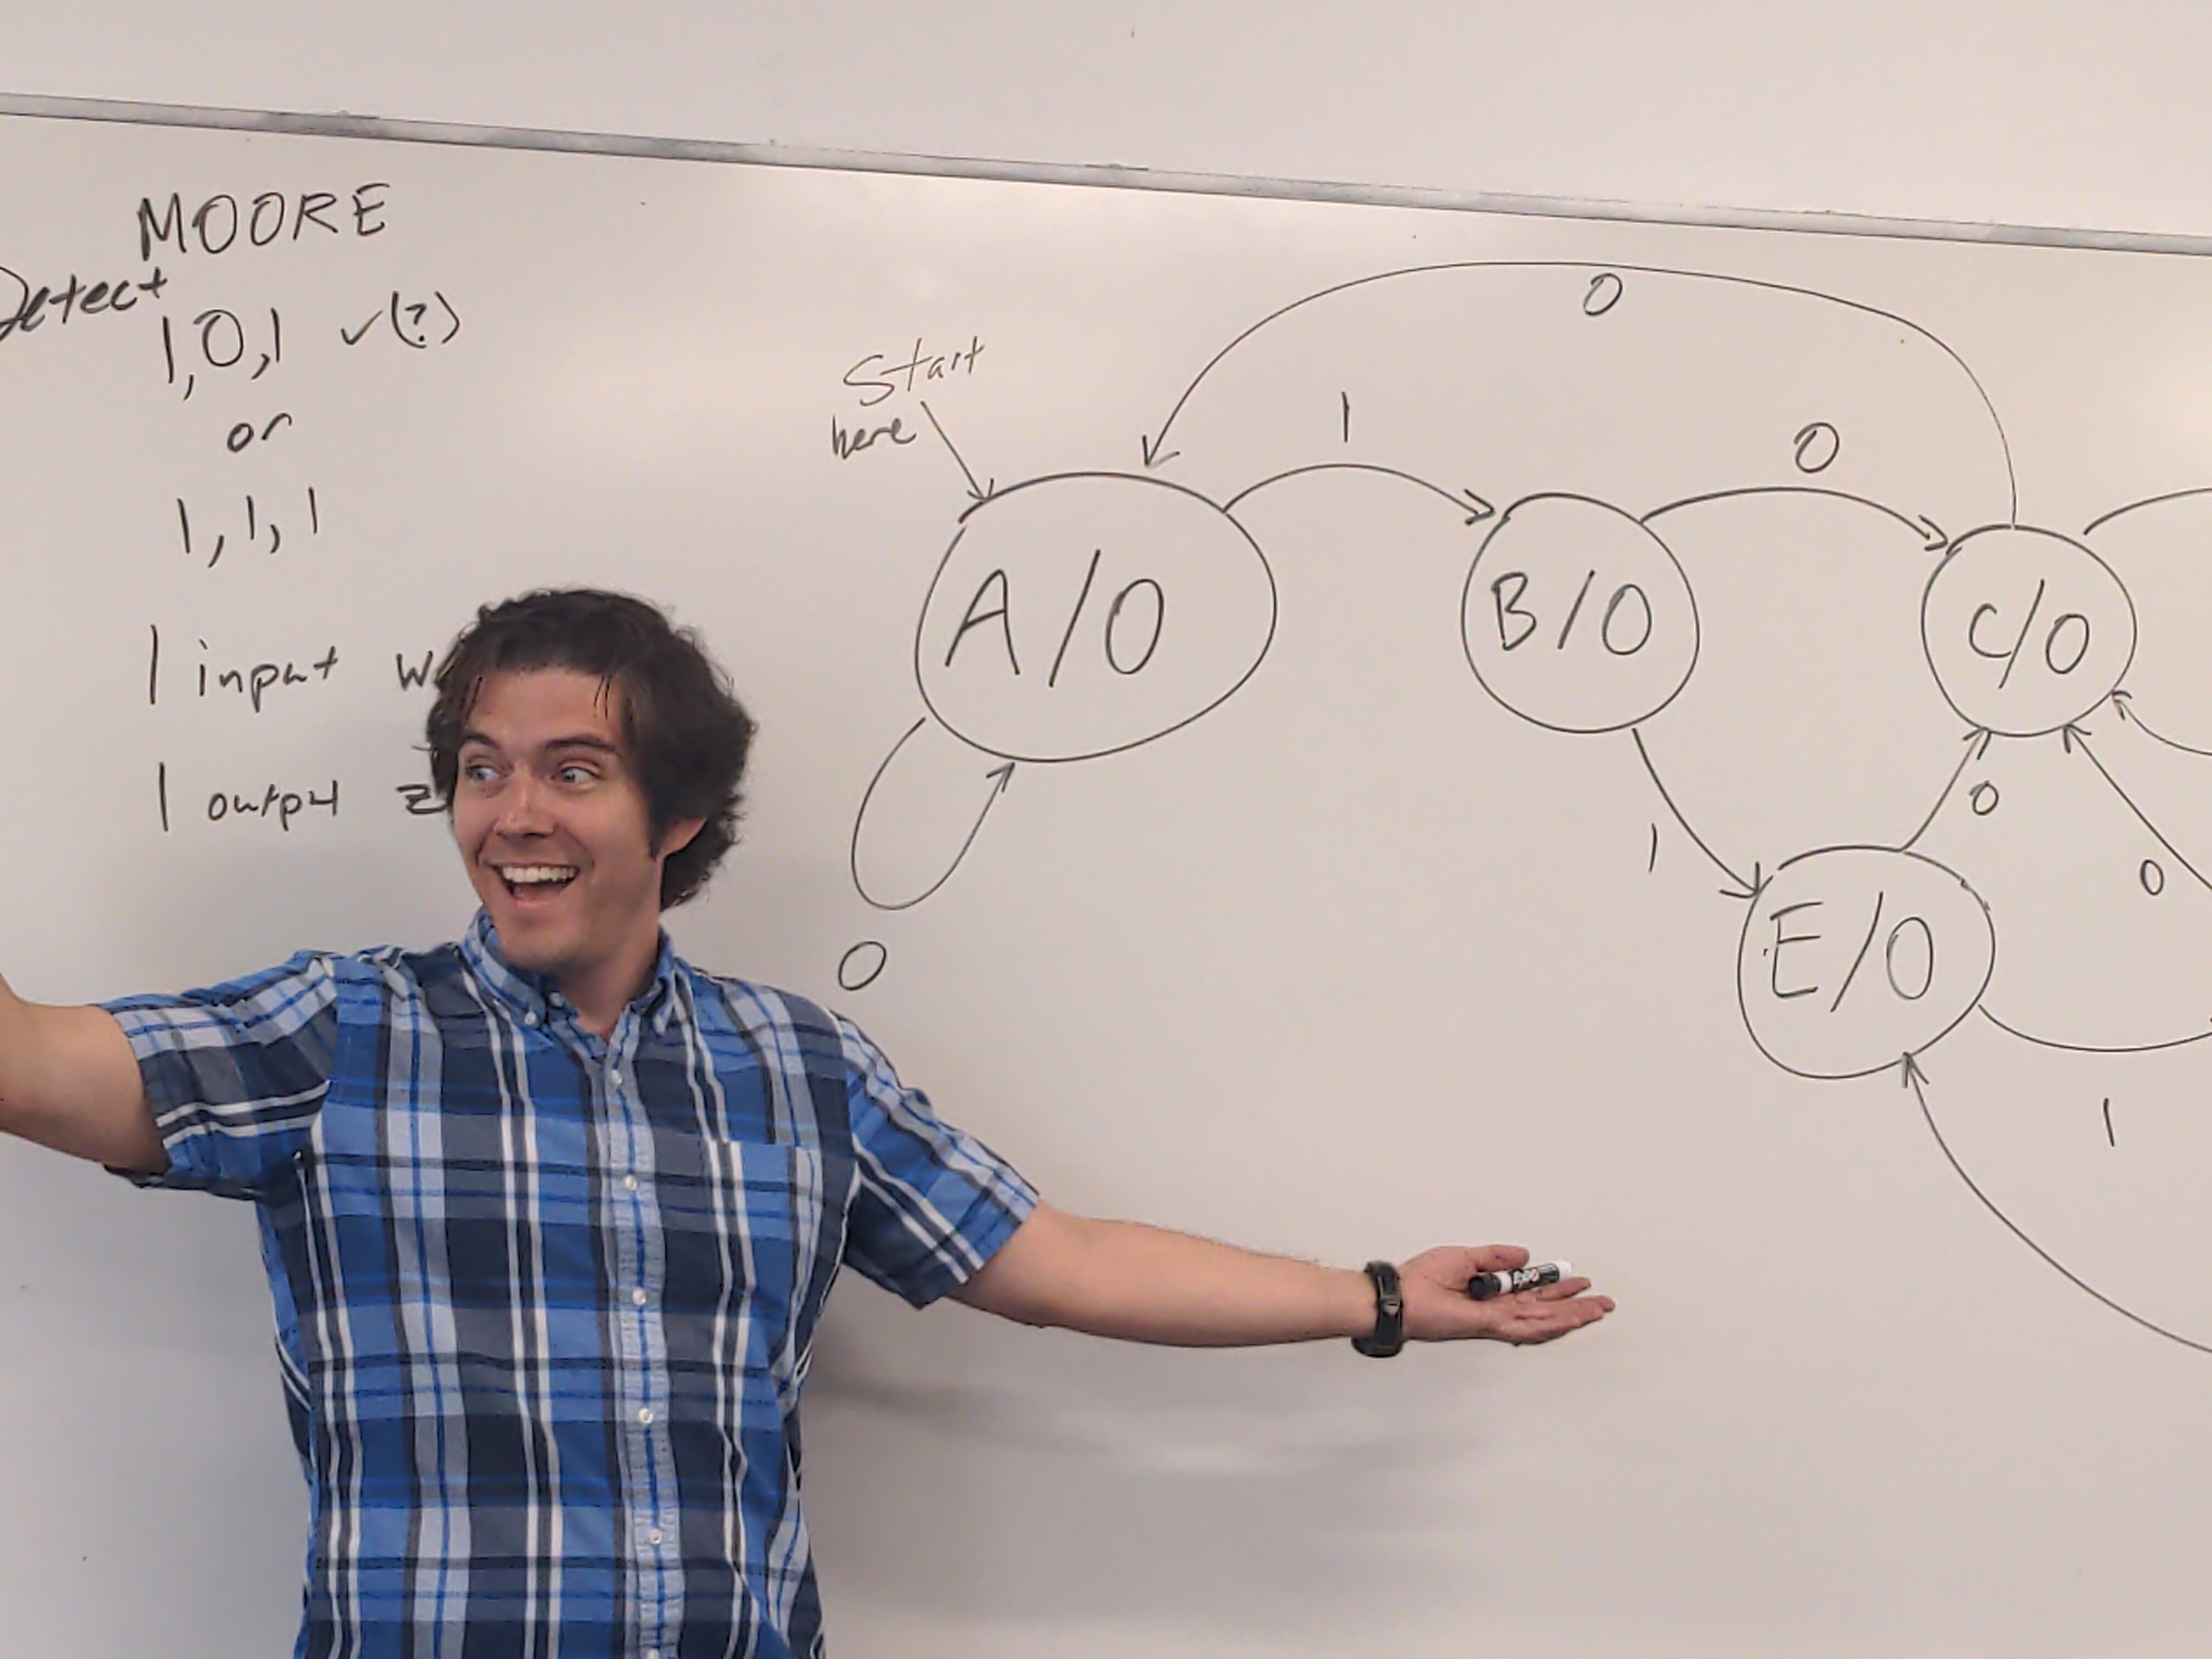 MOORE
Detect
1,0,1 ✓(?)
or
1,1,1
1 input w
1 output z
Start
here
0
1
0
A/0
B/0
C/0
0
1
0
0
E/0
1